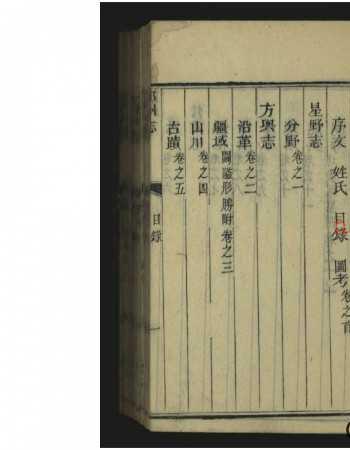 序文 姓氏 目錄 圖考卷之首
星野志
分野卷之一
方輿志
沿革卷之二
疆域圖隘形勝附卷之三
山川卷之四
古蹟卷之五
志 目錄